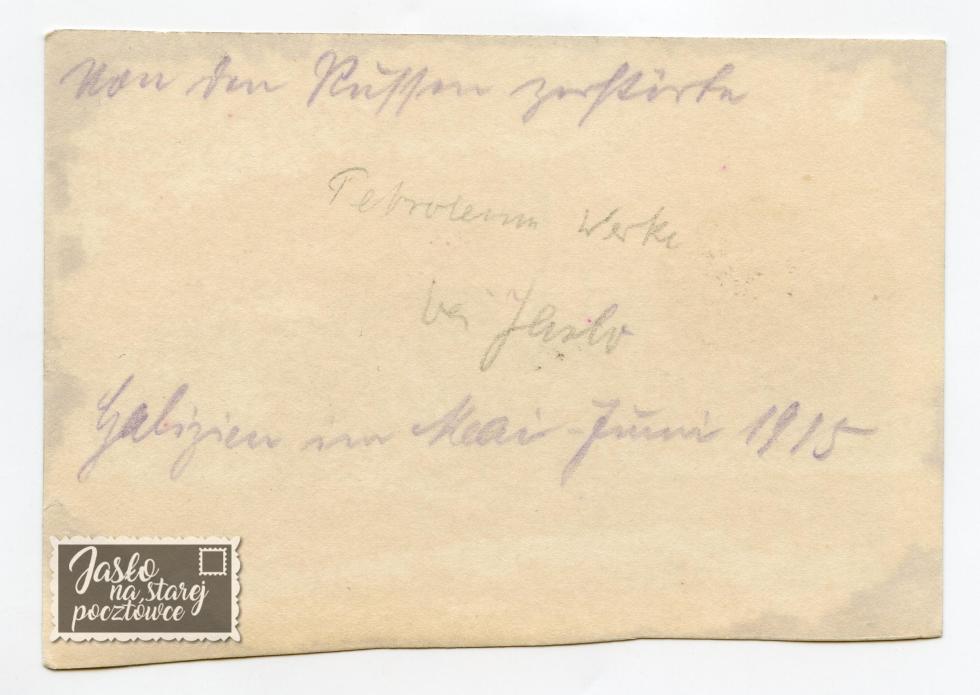 Von den Russen zerstörte
Petroleum Werke
bei Jaslo
Galizien im Mai-Juni 1915
Jasło
na starej
pocztówce